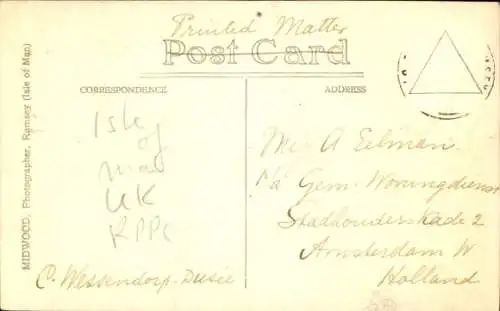 Printed Matter
Post Card
CORRESPONDENCE
ADDRESS
MIDWOOD, Photographer, Ramsey (Isle of Man)
Isle
of
Man
UK
RPPC
C. Wessendorp-Dusée
A Eelman
Gem. Woningdienst
Stadhouderskade 2
Amsterdam W
Holland